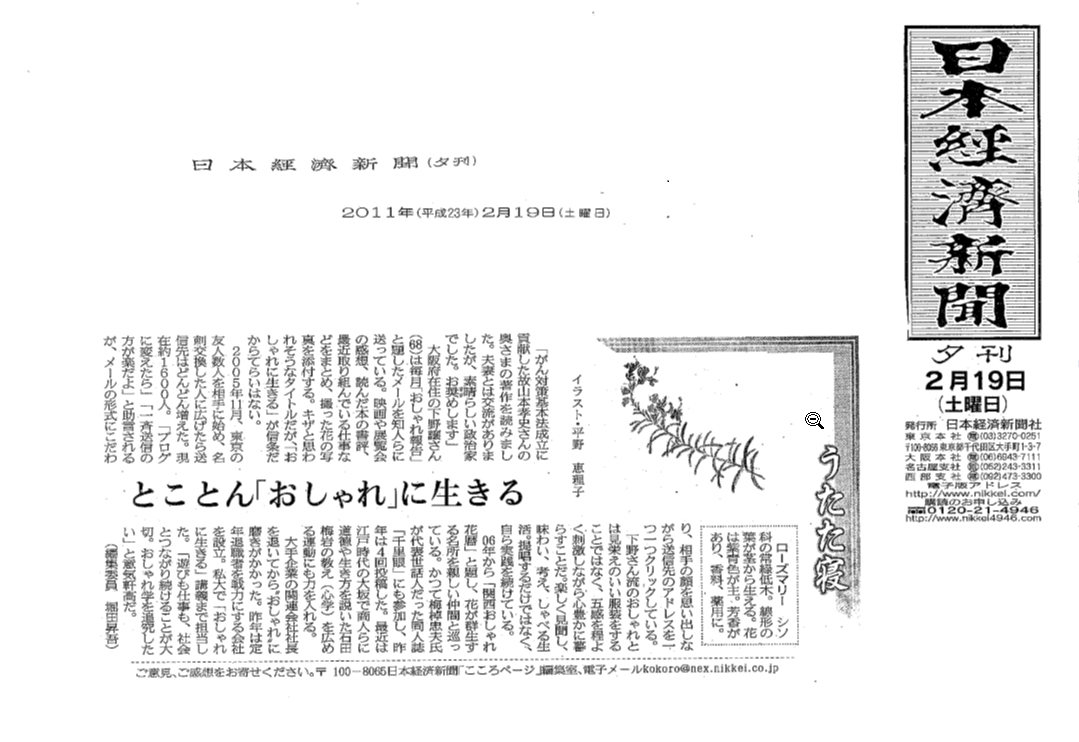 日本経済新聞(夕刊)
2011年(平成23年)2月19日(土曜日)
日本經濟新聞
夕刊
2月19日
(土曜日)
発行所 日本経済新聞社
東京本社 (03)3270-0251
〒100-8066 東京都千代田区大手町1-3-7
大阪本社 (06)6943-7111
名古屋支社 (052)243-3311
西部支社 (092)473-3300
電子版アドレス
http://www.nikkei.com/
購読のお申し込み
0120-21-4946
http://www.nikkei4946.com
うたた寝
イラスト・平野 恵理子
ローズマリー シソ
科の常緑低木。線形の
葉が茎から生える。花
は紫青色が主。芳香が
あり、香料、薬用に。
とことん「おしゃれ」に生きる
「がん対策基本法成立に
貢献した故山本孝史さんの
奥さまの著作を読みまし
た。夫妻とは交流がありま
したが、素晴らしい政治家
でした。お奨めします」
大阪府在住の下野譲さん
(68)は毎月「おしゃれ報告」
と題したメールを知人らに
送っている。映画や展覧会
の感想、読んだ本の書評、
最近取り組んでいる仕事な
どをまとめ、撮った花の写
真を添付する。キザと思わ
れそうなタイトルだが、「お
しゃれに生きる」が信条だ
からてらいはない。
2005年11月、東京の
友人数人を相手に始め、名
刺交換した人に広げたら送
信先はどんどん増えた。現
在約1600人。「ブログ
に変えたら」「一斉送信の
方が楽だよ」と助言される
が、メールの形式にこだわ
り、相手の顔を思い出しな
がら送信先のアドレスを一
つ一つクリックしている。
下野さん流のおしゃれと
は見栄えのいい服装をする
ことではなく、五感を程よ
く刺激しながら心豊かに暮
らすことだ。楽しく見聞し、
味わい、考え、しゃべる生
活。提唱するだけではなく、
自ら実践を続けている。
06年から「関西おしゃれ
花暦」と題し、花が群生す
る名所を親しい仲間と巡っ
ている。かつて梅棹忠夫氏
が代表世話人だった同人誌
「千里眼」にも参加し、昨
年は4回投稿した。最近は
江戸時代の大坂で商人らに
道徳や生き方を説いた石田
梅岩の教え「心学」を広め
る運動にも力を入れる。
大手企業の関連会社社長
を退いてから“おしゃれ”に
磨きがかかった。昨年は定
年退職者を戦力にする会社
を設立。私大で「おしゃれ
に生きる」講義まで担当し
た。「遊びも仕事も、社会
とつながり続けることが大
切。おしゃれ学を追究した
い」と意気軒高だ。
(編集委員 堀田昇吾)
ご意見、ご感想をお寄せください。〒100-8065日本経済新聞「こころページ」編集室、電子メールkokoro@nex.nikkei.co.jp